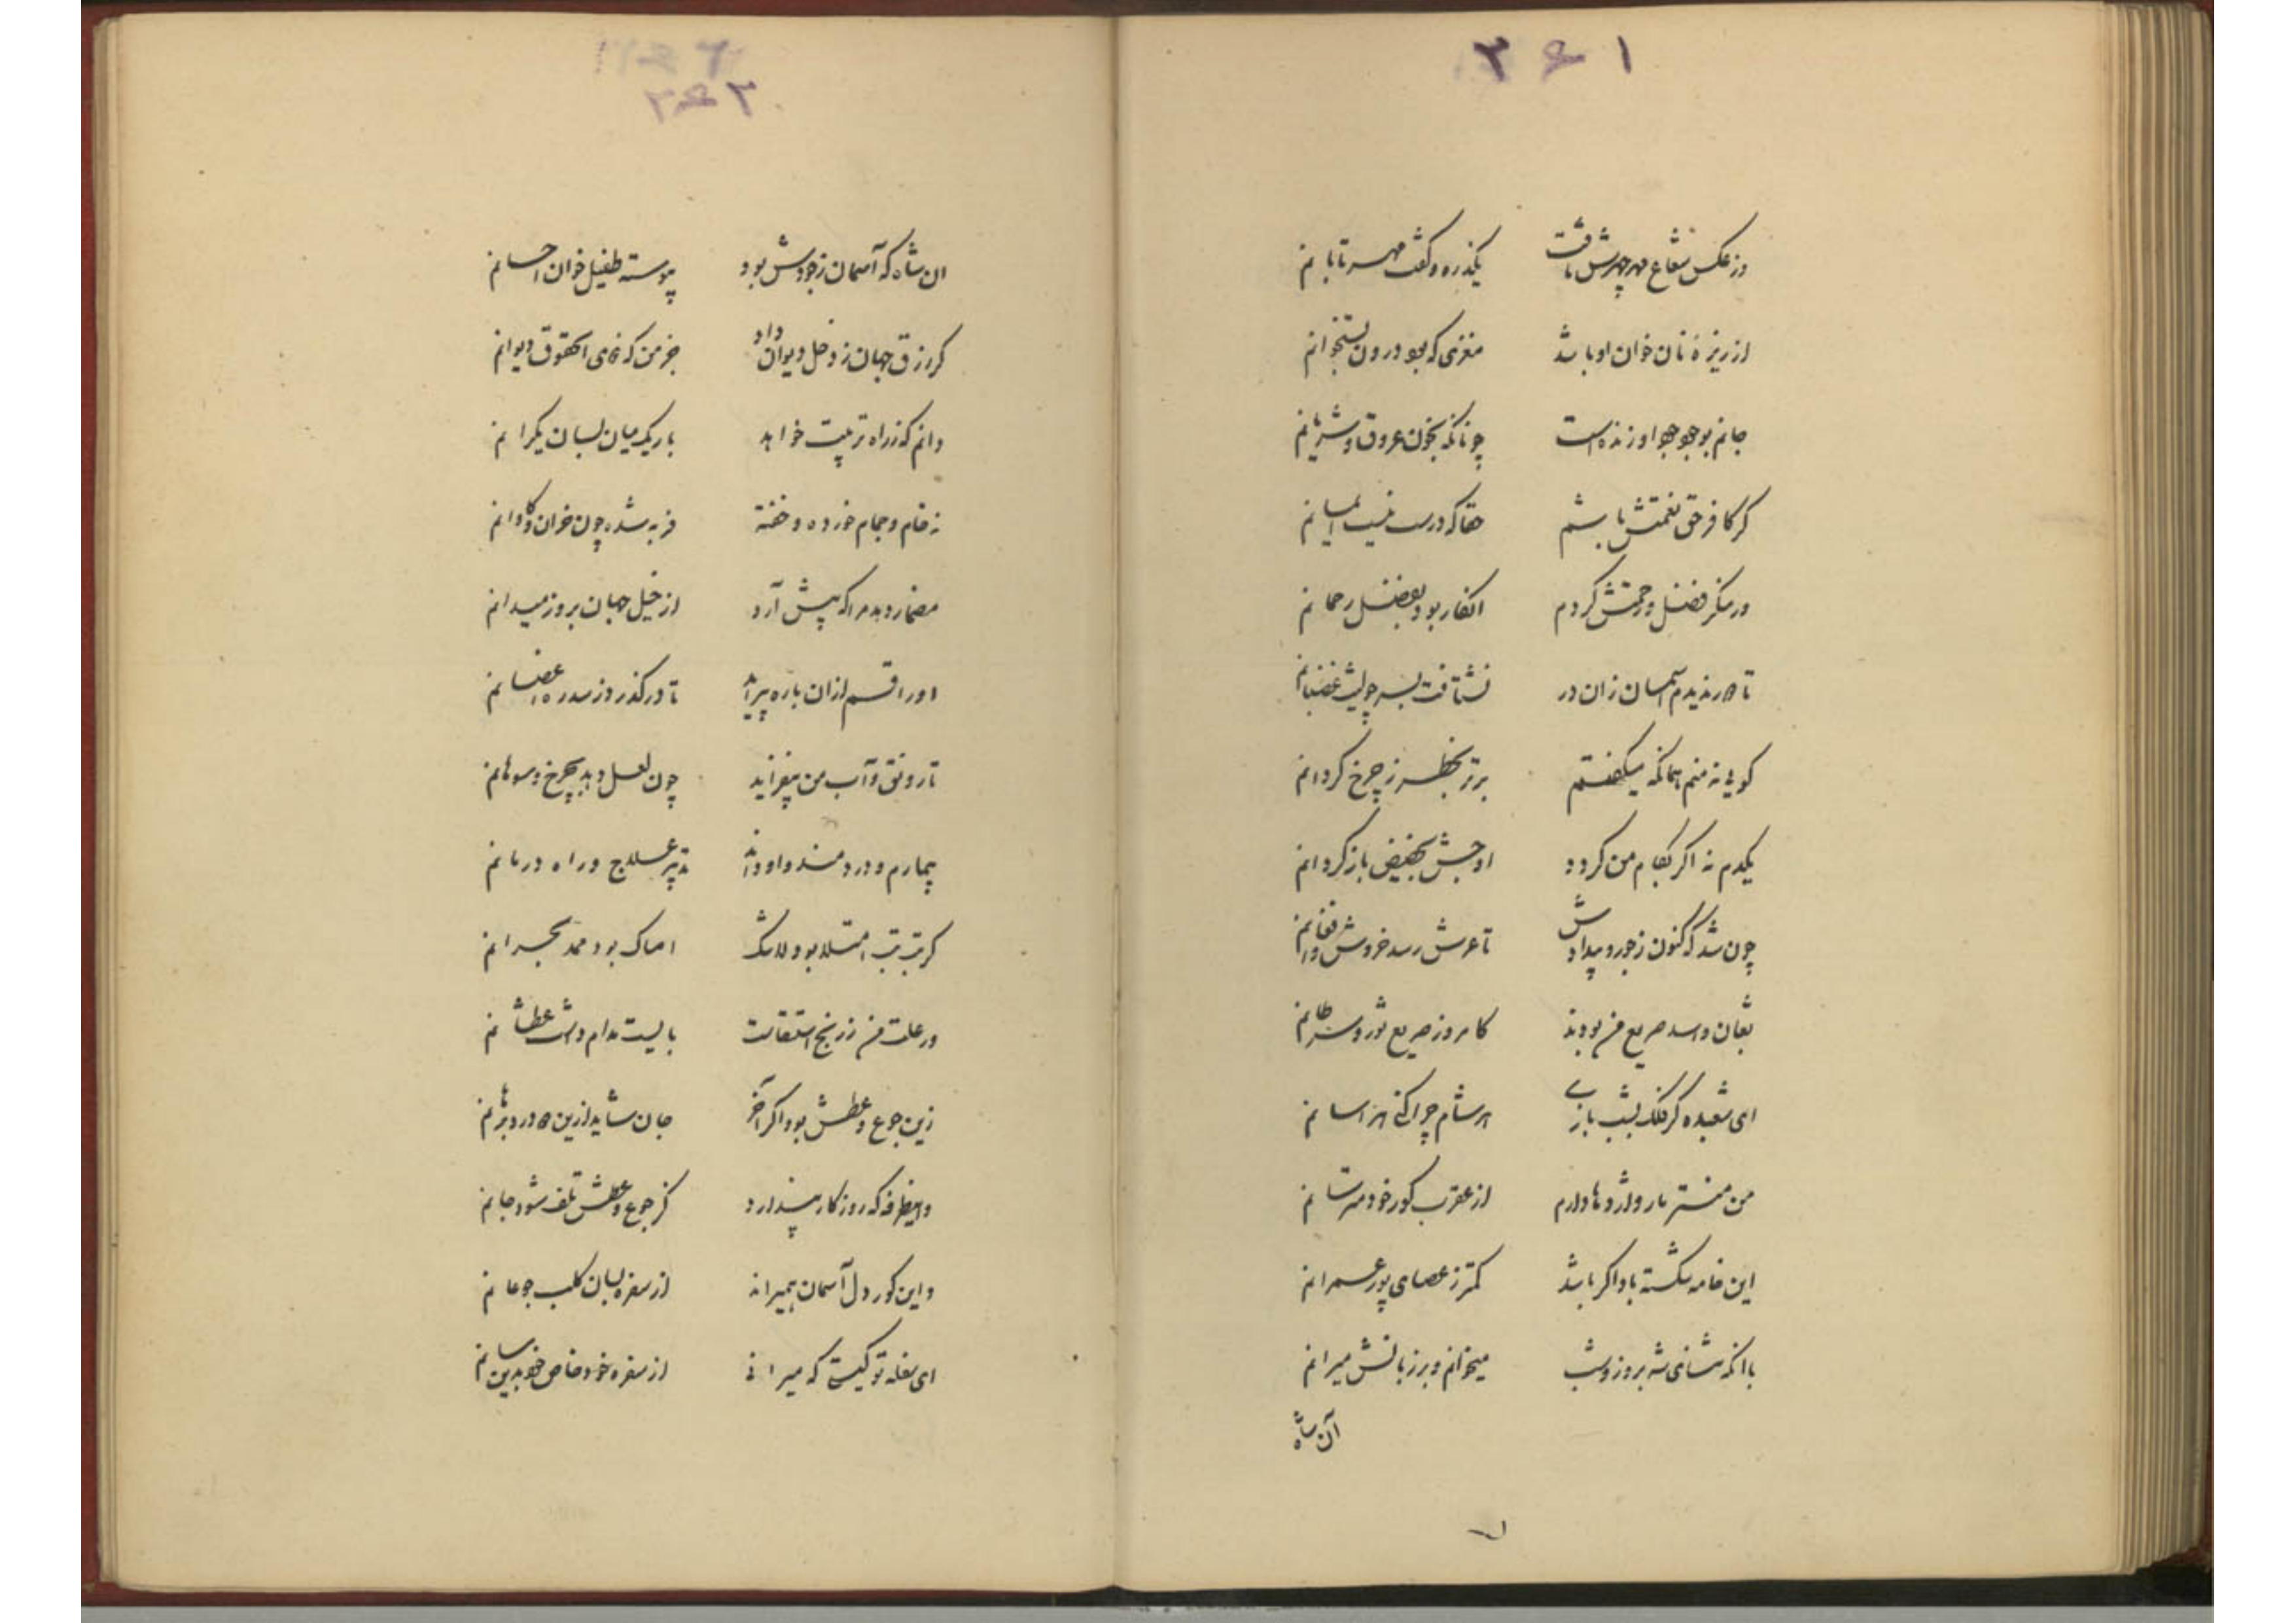 ۲۶۱
وز عکس شعاع مهر چهرش تافت یکذره و کفت مهر تابانم
از ریزهٔ نان خوان او باشد مغزی که بود درون ستخوانم
جانم بوجود جود او زنده است چونانکه بخون عروق و شریانم
کر کافر حق نعمتش باشم حقا که درست نیست ایمانم
ور منکر فضل و رحمتش کردم انکار بود بفضل رحمانم
تا دور ندیدم آسمان زان در نشتافت بسر چو لیث غضبانم
کویی نه منم همانکه میکفتم برتر بخطر ز چرخ کردانم
یکدم نه اکر بکام من کردد اوجش بحضیض باز کردانم
چون شد که کنون ز جور و بیدادش تا عرش رسد خروش و افغانم
ثعبان و اسد صریع من بودند کامروز صریع ثور و سرطانم
ای شعبده کر فلک بشب بازی هر شام چرا کنی هراسانم
من منتر مار و اژدها دارم از عقرب کور خود مترسانم
این خامه شکسته باد اکر باشد کمتر ز عصای پور عمرانم
با انکه ثنای شه بروز و شب میخوانم و بر زبانش میرانم
آن شاه
۲۶۲
ان شاه که آسمان ز جودش بود پیوسته طفیل خوان احسانم
کر رزق جهان ز دخل دیوان داد جز من که نه‌ی الحقوق دیوانم
دانم که ز راه تربیت خواهد باریک میان بسان یکرانم
نه خام و جمام خورده و خفته فربه شده چون خران و کاوانم
مضمار دهد مرا که پیش آرد از خیل جهان بروز میدانم
تا در کذرد ز سدره اغصانم
تا رونق و آب من بیفزاید چون لعل دهد بچرخ و سوهانم
بیمارم و دردمند و او داند تدبیر علاج و راه درمانم
کر تب تب امتلا بود لاشک امساک بود ممد بحرانم
ور علت من ز رنج استسقاست بایست مدام داشت عطشانم
زین جوع و عطش بود اکر آخر جان شاید ازین دو درد برهانم
واینطرفه که روزکار پندارد کز جوع و عطش تلف شود جانم
واین کور دل آسمان همیراند از سفره بسان کلب جوعانم
ای سفله تو کیستی که میرانی از سفره خود خاص خود بدین سانم